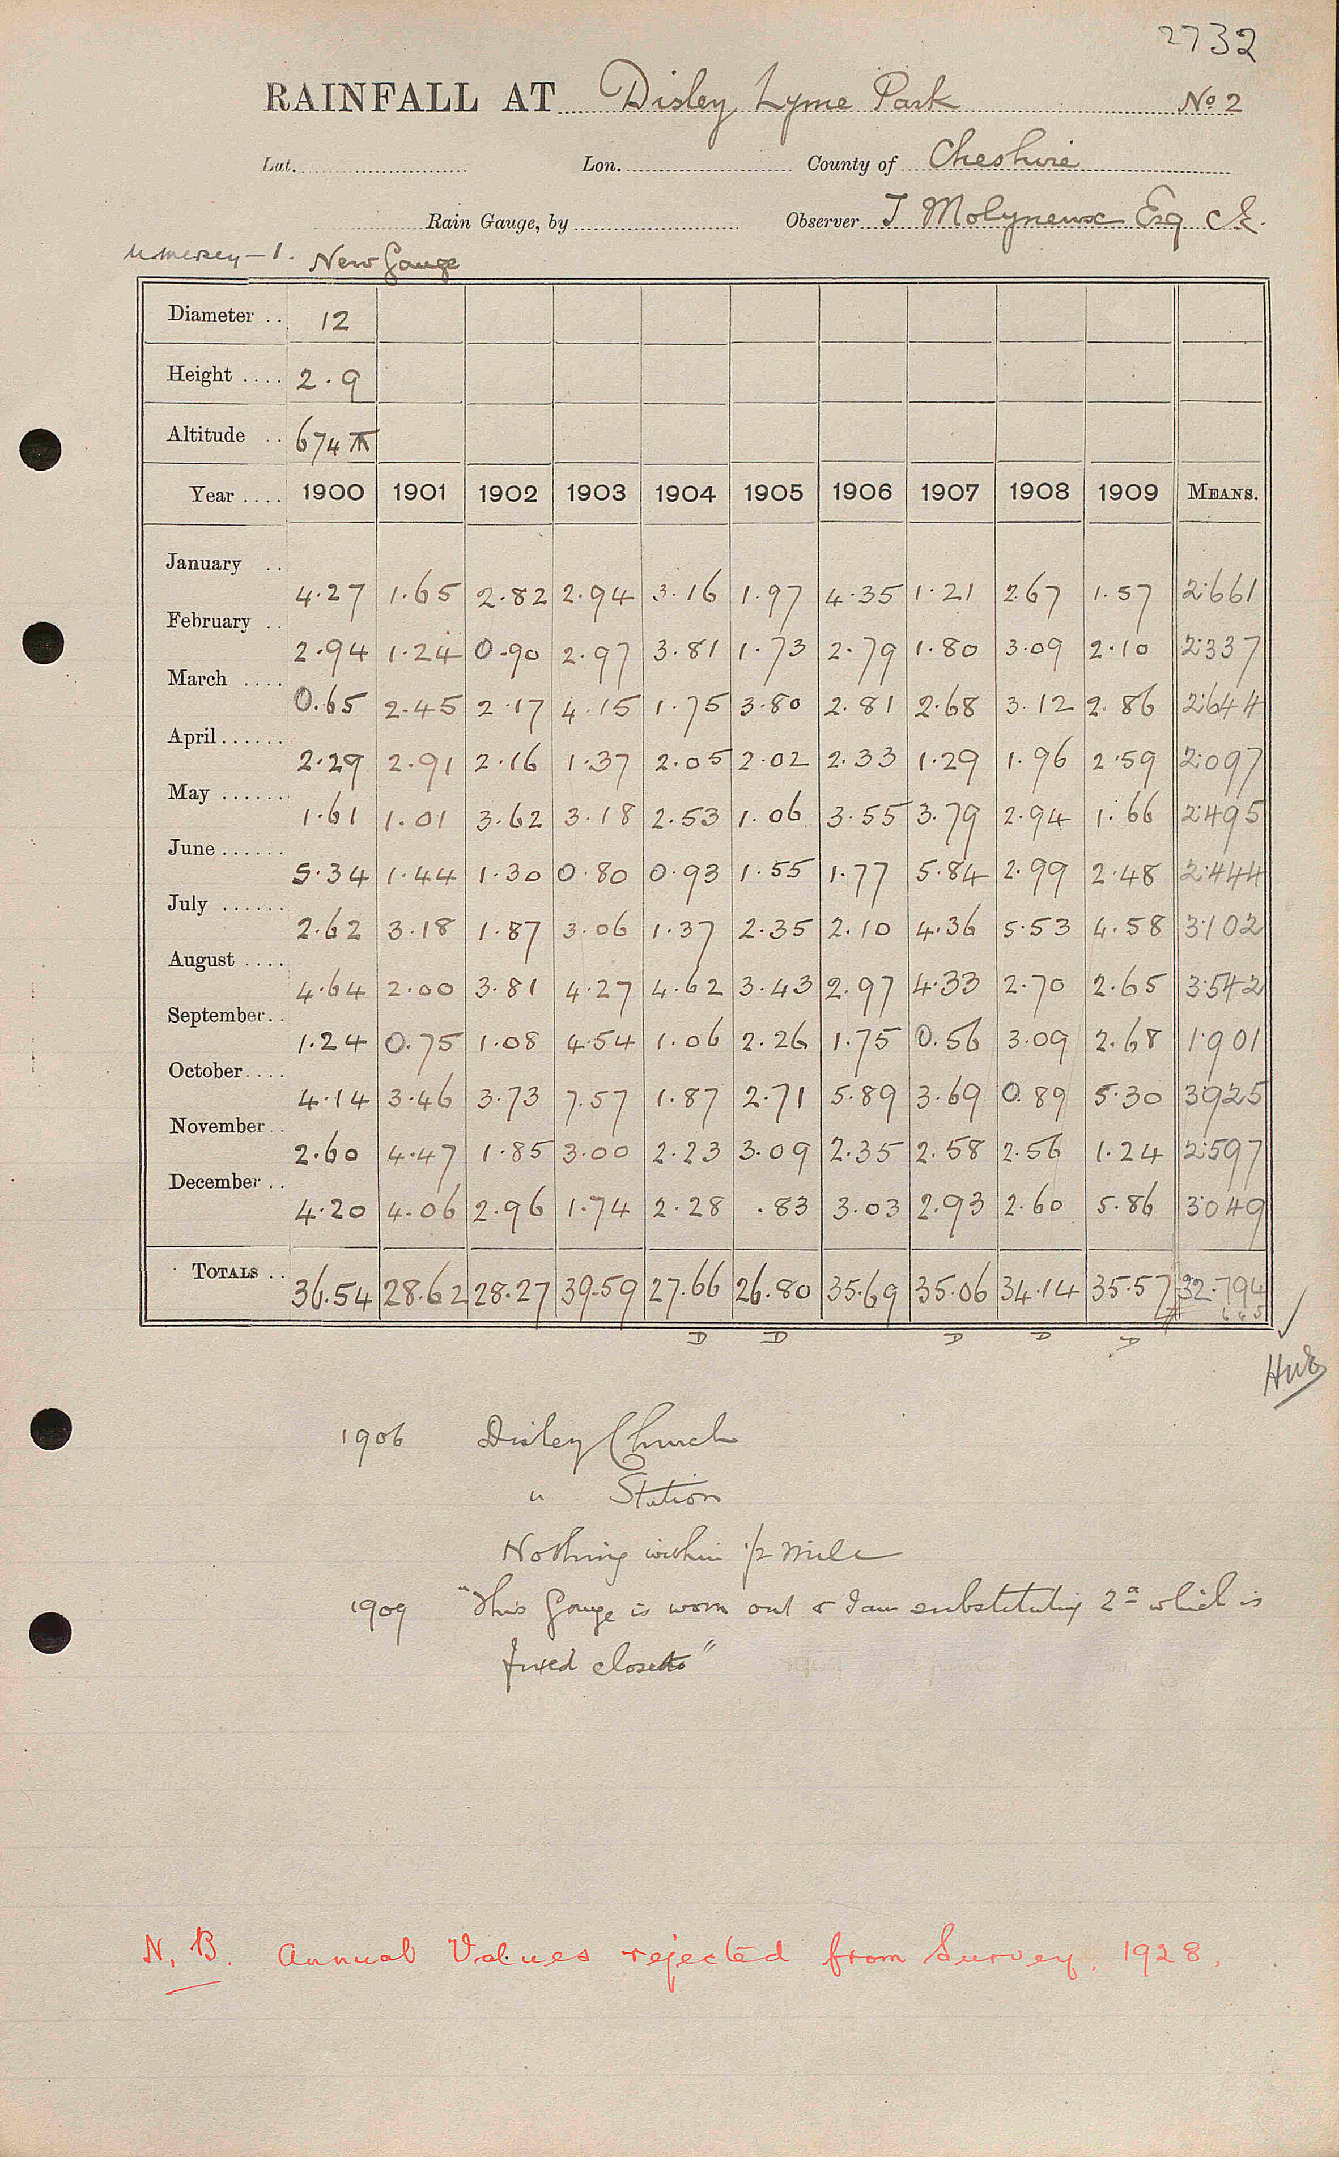 2732
RAINFALL AT Disley, Lyme Park No 2
Lat. Lon. County of Cheshire
Rain Gauge, by Observer T Molyneux Esq C.E.
New Gauge
Diameter .. 12
Height .... 2.9
Altitude .. 674
Year .... 1900 1901 1902 1903 1904 1905 1906 1907 1908 1909 MEANS.
January .. 4.27 1.65 2.82 2.94 3.16 1.97 4.35 1.21 2.67 1.57 2.661
February .. 2.94 1.24 0.90 2.97 3.81 1.73 2.79 1.80 3.09 2.10 2.337
March .... 0.65 2.45 2.17 4.15 1.75 3.80 2.81 2.68 3.12 2.86 2.644
April ...... 2.29 2.91 2.16 1.37 2.05 2.02 2.33 1.29 1.96 2.59 2.097
May ...... 1.61 1.01 3.62 3.18 2.53 1.06 3.55 3.79 2.94 1.66 2.495
June ...... 5.34 1.44 1.30 0.80 0.93 1.55 1.77 5.84 2.99 2.48 2.444
July ...... 2.62 3.18 1.87 3.06 1.37 2.35 2.10 4.36 5.53 4.58 3.102
August .... 4.64 2.00 3.81 4.27 4.62 3.43 2.97 4.33 2.70 2.65 3.542
September.. 1.24 0.75 1.08 4.54 1.06 2.26 1.75 0.56 3.09 2.68 1.901
October.... 4.14 3.46 3.73 7.57 1.87 2.71 5.89 3.69 0.89 5.30 3.925
November.. 2.60 4.47 1.85 3.00 2.23 3.09 2.35 2.58 2.56 1.24 2.597
December .. 4.20 4.06 2.96 1.74 2.28 .83 3.03 2.93 2.60 5.86 3.049
TOTALS .. 36.54 28.62 28.27 39.59 27.66 26.80 35.69 35.06 34.14 35.57 32.794
D D D D D
1906 Disley Church
" Station
Nothing within 1/2 mile
1909 "This Gauge is worn out & I am substituting 2a which is
fixed close to"
N.B. Annual Values rejected from Survey. 1928.